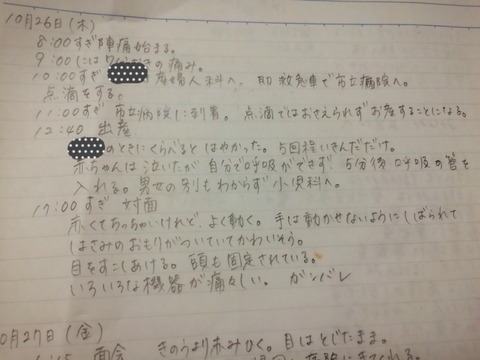 10月26日(木)
8:00すぎ 陣痛始まる。
9:00には 7分おきの痛み。
10:00すぎ 産婦人科へ。 救急車で市立病院へ。
点滴をする。
11:00すぎ 市立病院に到着。 点滴ではおさえられず お産することになる。
12:40 出産
のときにくらべると はやかった。 5回程いきんだだけ。
赤ちゃんは 泣いたが 自分で呼吸ができず 5分後 呼吸の管を
入れる。男女の別もわからず 小児科へ。
17:00すぎ 対面
赤くてちっちゃいけれど、よく動く。 手は動かせないようにしばられて
はさみのおもりがついていて かわいそう。
目をすこしあける。 頭も固定されている。
いろいろな機器が痛々しい。 ガンバレ
10月27日(金)
面会 きのうより赤みひく。 目はとじたまま。